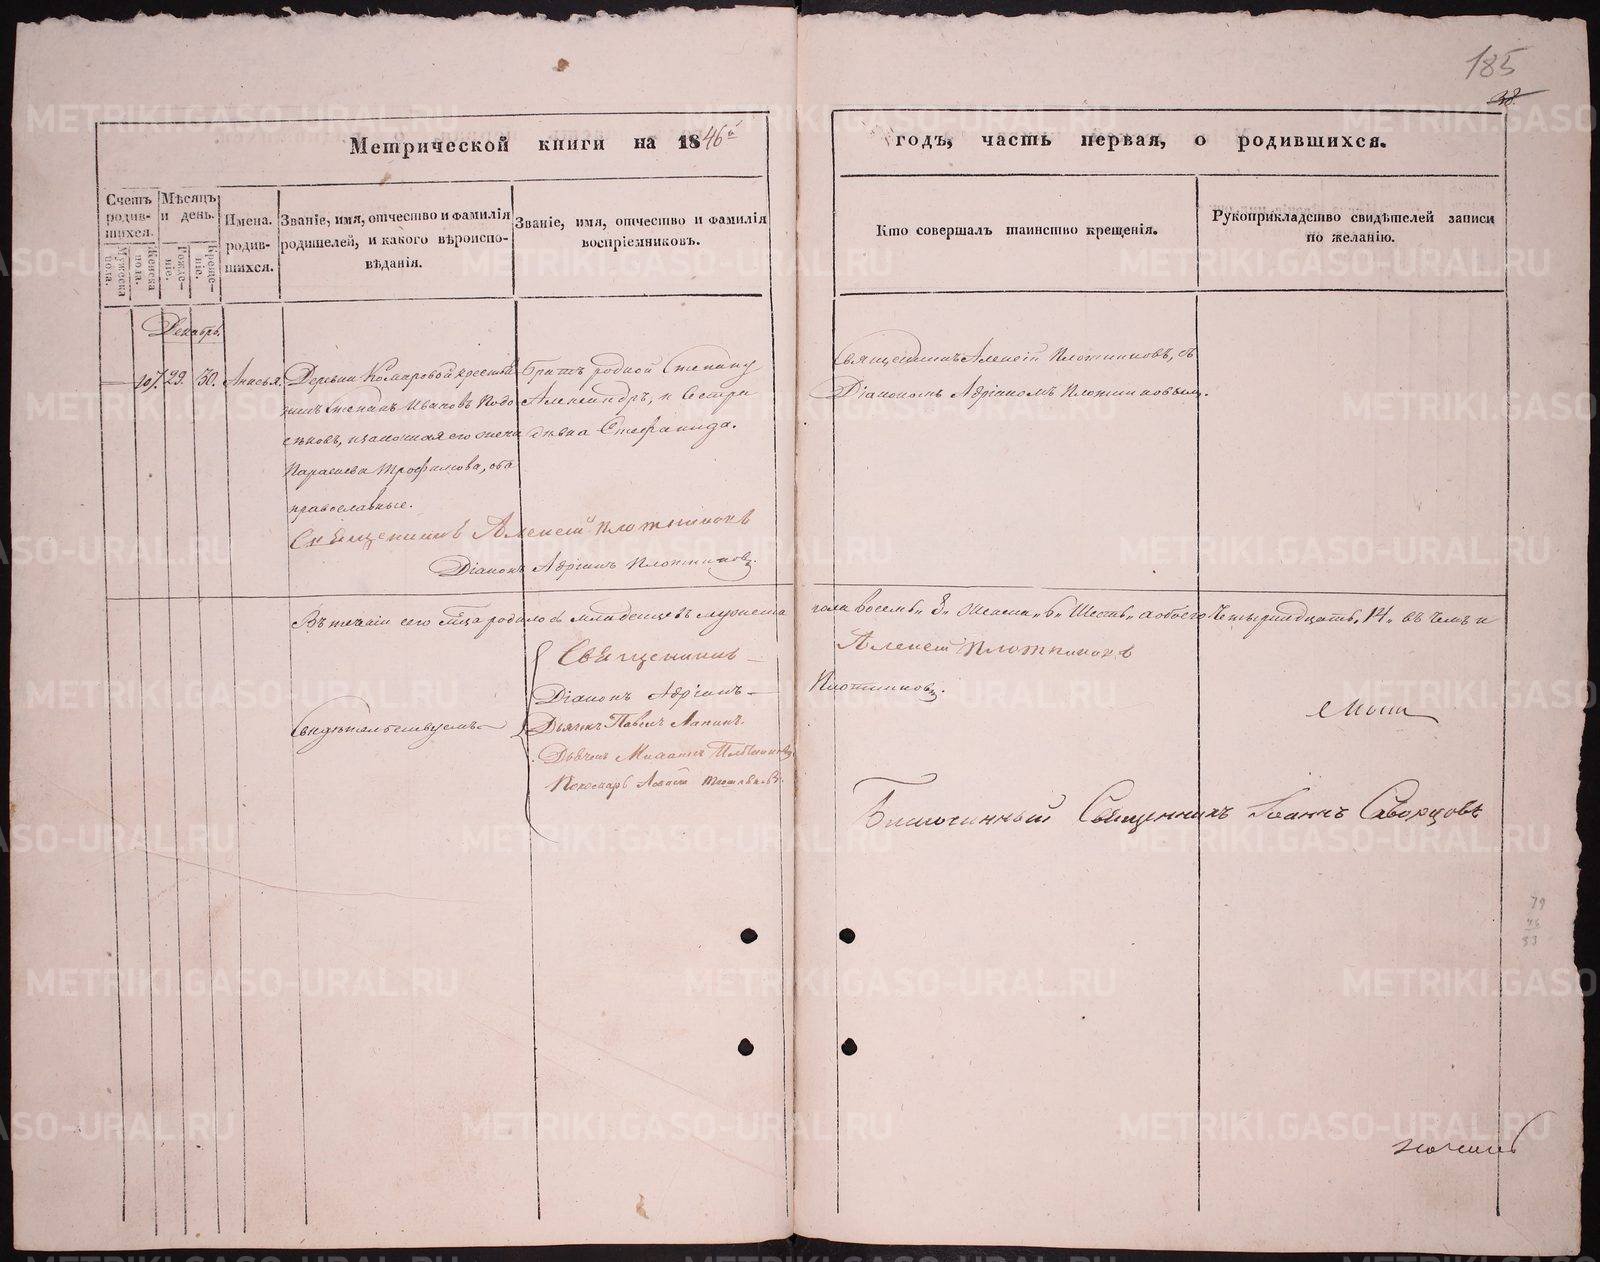 185
38.
Метрической книги на 1846й
годъ, часть первая, о родившихся.
Счетъ родив-шихся.
Мужеска пола.
Женска пола.
Мѣсяцъ и день.
Рожде-ніе.
Креще-ніе.
Имена. родив-шихся.
Званіе, имя, отчество и фамилія
родителей, и какого вѣроиспо-
вѣданія.
Званіе, имя, отчество и фамилія
воспріемниковъ.
Кто совершалъ таинство крещенія.
Рукоприкладство свидѣтелей записи
по желанію.
Декабрь.
107. 29. 30. Анисья.
Деревни Комаровой крестья
нинъ Степанъ Ивановъ Подо
сѣновъ, изаконная его жена
Параскева Трофимова, оба
православные.
Братъ родной Степану
Александръ, и Сестра
дѣвка Стефанида.
Священникъ Алексій Плотниковъ, съ
Діакономъ Адріаномъ Плотниковымъ.
Священникъ Алексій Плотниковъ
Діаконъ Адріанъ Плотниковъ.
Въ теченіи сего м͠ца родилось младенцевъ мужеска
пола восемь „8„ женска „6„ Шесть„ а обоего Четырнадцать, 14„ въ чемъ и
Свидѣтельствуемъ
Священникъ
Алексій Плотниковъ
Діаконъ Адріанъ
Плотниковъ.
Дьячекъ Павелъ Лапинъ.
Дьячекъ
Пономарь
Благочинный Священникъ Іоаннъ Скворцовъ
79
33
METRIKI.GASO-URAL.RU